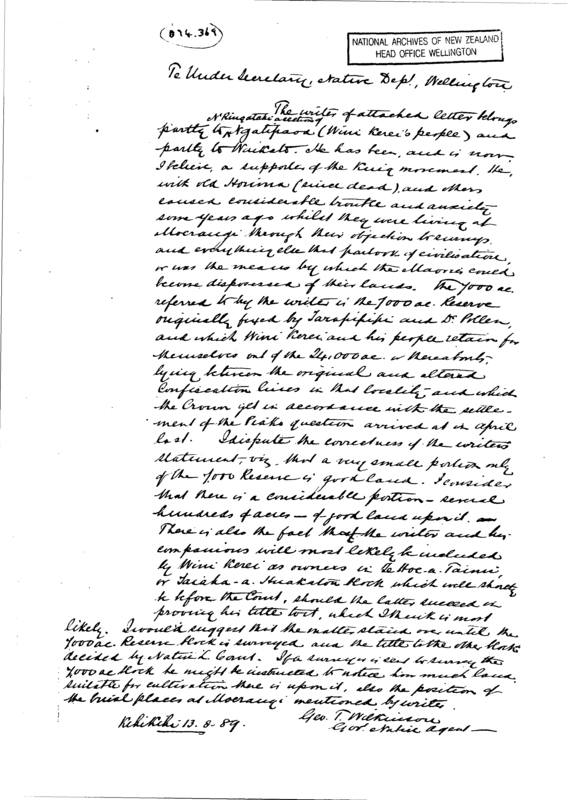 (074.369)
NATIONAL ARCHIVES OF NEW ZEALAND
HEAD OFFICE WELLINGTON
To Under Secretary, Native Dept, Wellington
The writer of attached letter belongs
partly to Ngatipaoa (Wini Kerei's people) and
partly to Waikato. He has been, and is now
I believe, a supporter of the King movement. He,
with old Horima (since dead), and others
caused considerable trouble and anxiety
some years ago whilst they were living at
through their objection to surveys
and everything else that partook of civilisation,
or was the means by which the Maories could
become dispossessed of their lands. The 7000 ac
referred to by the writer is the 7000 ac. Reserve
originally fixed by Tarapipipi and Dr Pollen,
and which Wini Kerei and his people retain for
themselves out of the 24,000 ac or thereabouts,
lying between the original and altered
Confiscation lines in that locality, and which
the Crown get in accordance with the settle-
ment of the Piako question arrived at in April
last. I dispute the correctness of the writers
statement, viz. that a very small portion only
of the 7000 Reserve is good land. I consider
that there is a considerable portion - several
hundreds of acres - of good land upon it. -
There is also the fact that the writer and his
companions will most likely be included
by Wini Kerei as owners in Te Hoe-a-Tainui,
or Taiaha-a- Block which will shortly
be before the Court, should the latter succeed in
proving his title to it, which I think is most
likely. I would suggest that the matter stand over until the
7000 ac. Reserve Block is surveyed and the title to the other Block
decided by Native L. Court. If a surveyor is sent to survey the
7000 ac Block he might be instructed to notice how much land
suitable for cultivation there is upon it, also the position of
the burial places at mentioned by writer.
Geo. T. Wilkinson
Kihikihi 13-8-89.
Gov. Native Agent -